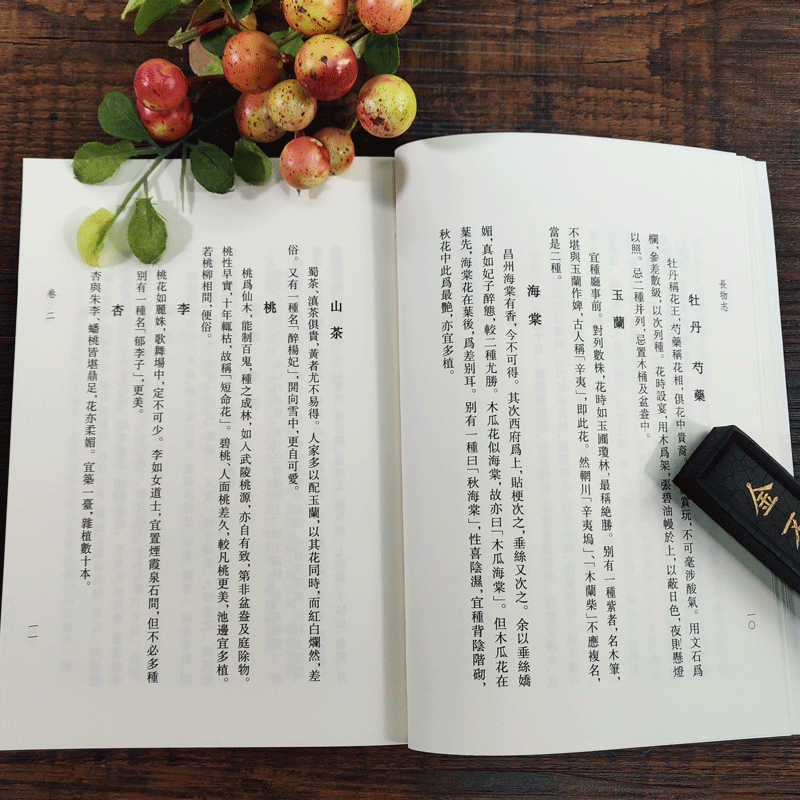 長物志
牡丹 芍藥
牡丹稱花王，芍藥稱花相，俱花中貴裔。
賞玩，不可毫涉酸氣。用文石爲
欄，參差數級，以次列種。花時設宴，用木爲架，張碧油幔於上，以蔽日色，夜則懸燈
以照。忌二種并列，忌置木桶及盆盎中。
玉蘭
宜種廳事前。對列數株，花時如玉圃瓊林，最稱絶勝。别有一種紫者，名木筆，
不堪與玉蘭作婢，古人稱「辛夷」，即此花。然輞川「辛夷塢」、「木蘭柴」不應複名，
當是二種。
海棠
昌州海棠有香，今不可得。其次西府爲上，貼梗次之，垂絲又次之。余以垂絲嬌
媚，真如妃子醉態，較二種尤勝。木瓜花似海棠，故亦曰「木瓜海棠」。但木瓜花在
葉先，海棠花在葉後，爲差别耳。别有一種曰「秋海棠」，性喜陰濕，宜種背陰階砌，
秋花中此爲最艷，亦宜多植。
一〇
山茶
蜀茶、滇茶俱貴，黃者尤不易得。人家多以配玉蘭，以其花同時，而紅白爛然，差
俗。又有一種名「醉楊妃」，開向雪中，更自可愛。
桃
桃爲仙木，能制百鬼，種之成林，如入武陵桃源，亦自有致，第非盆盎及庭除物。
桃性早實，十年輒枯，故稱「短命花」。碧桃、人面桃差久，較凡桃更美，池邊宜多植。
若桃柳相間，便俗。
李
桃花如麗姝，歌舞場中，定不可少。李如女道士，宜置煙霞泉石間，但不必多種
别有一種名「郁李子」，更美。
杏
杏與朱李、蟠桃皆堪鼎足，花亦柔媚。宜築一臺，雜植數十本。
卷二
一一
金